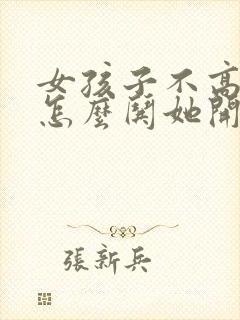 女孩子不高
怎麼鬨她開
張新兵